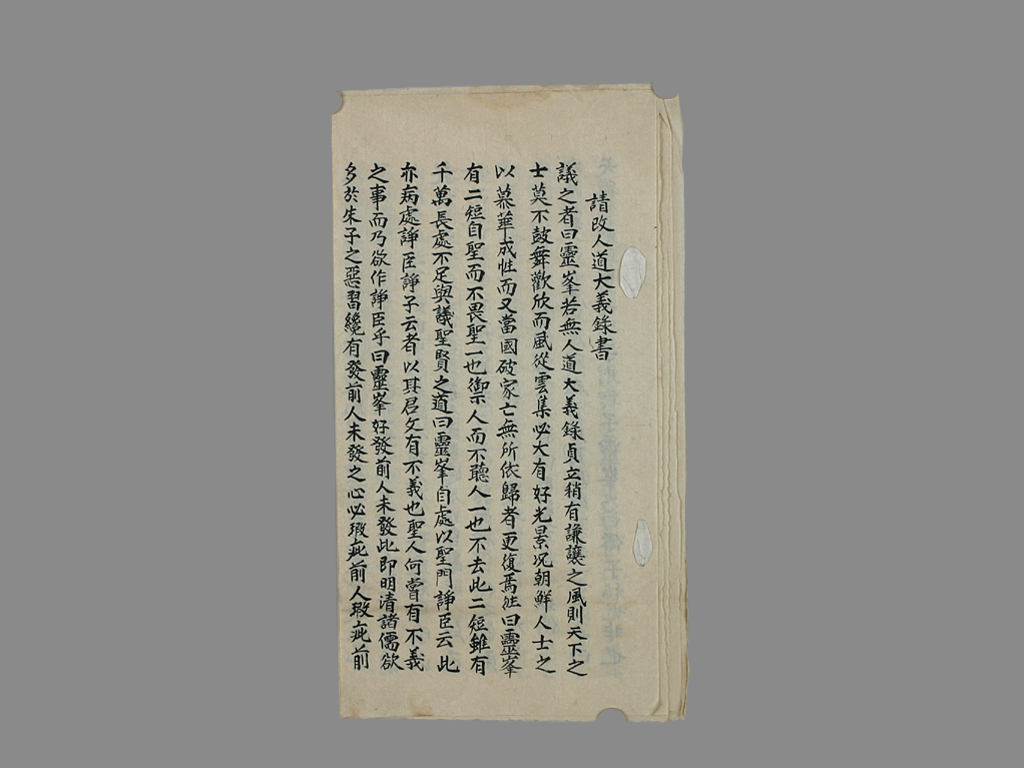 請改人道大義錄書
議之者曰靈峯若無人道大義錄貞立稍有謙讓之風則天下之
士莫不鼓舞歡欣而風從雲集必大有好光景况朝鮮人士之
以慕華成性而又當國破家亡無所依歸者更復焉往曰靈峯
有二短自聖而不畏聖一也禦人而不聽人一也不去此二短雖有
千萬長處不足與議聖賢之道曰靈峯自處以聖門諍臣云此
亦病處諍臣諍子云者以其君父有不義也聖人何嘗有不義
之事而乃欲作諍臣乎曰靈峯好發前人未發此即明清諸儒欲
多於朱子之惡習纔有發前人未發之心必瑕疵前人瑕疵前